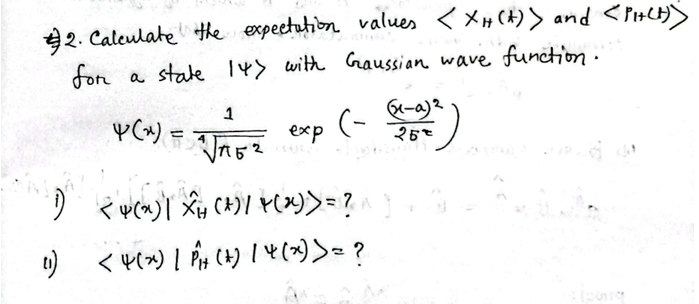 2. Calculate the expectation values < X_H(t) > and < P_H(t) >
for a state |ψ> with Gaussian wave function.
ψ(x) = 1/∜(πσ²) exp (- (x-a)²/2σ²)
i) < ψ(x) | X̂_H (t) | ψ(x) > = ?
ii) < ψ(x) | P̂_H (t) | ψ(x) > = ?